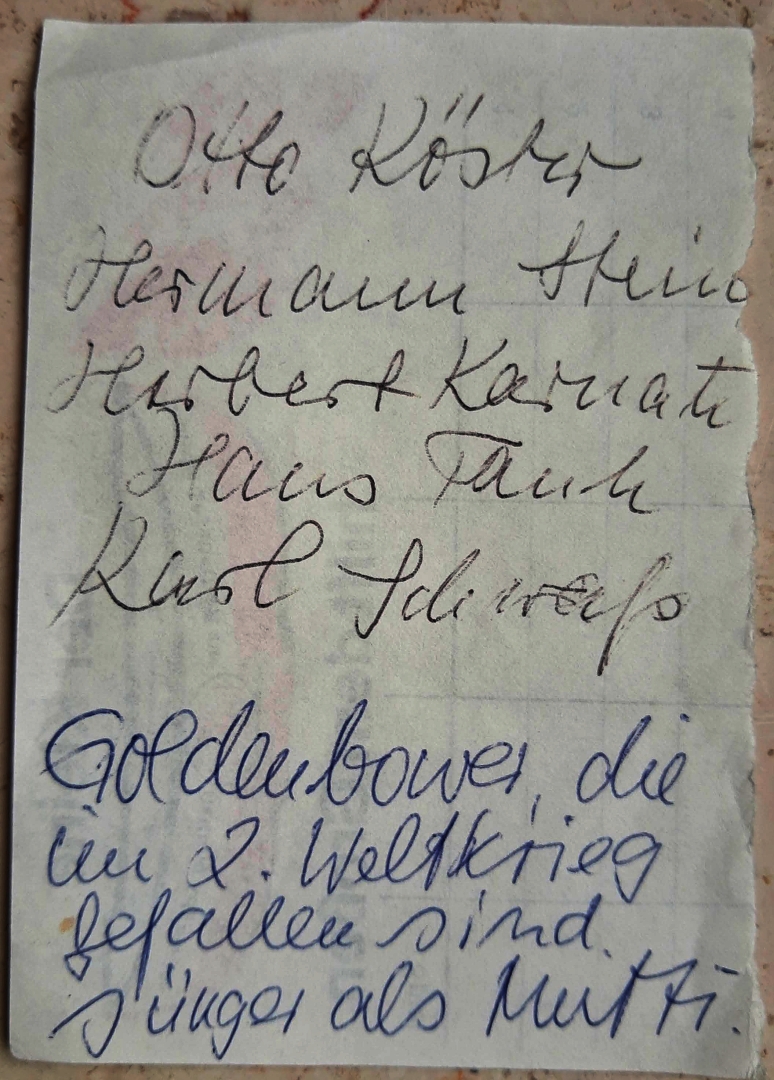 Otto Köster
Hermann Stein
Herbert Karnatz
Hans Tank
Karl
Goldenbower, die
im 2. Weltkrieg
gefallen sind.
jünger als Mutti.